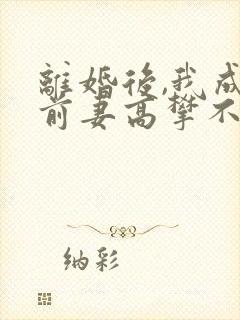 離婚後,我成
前妻高攀不
纳彩